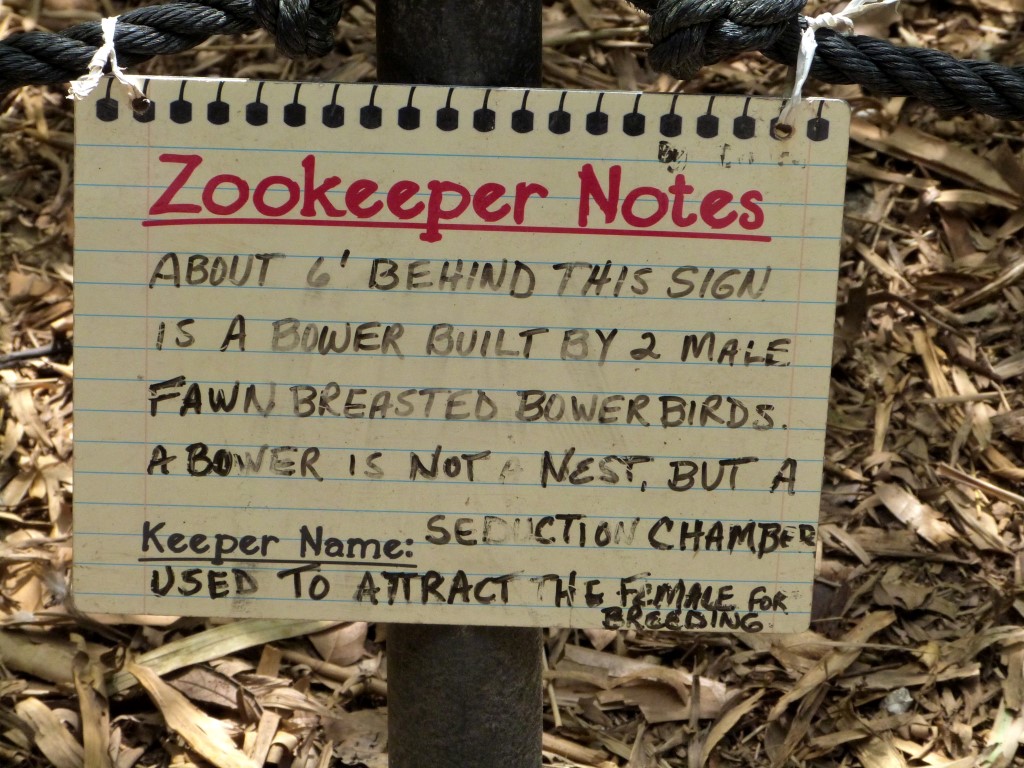 By
Zookeeper Notes
ABOUT 6' BEHIND THIS SIGN
IS A BOWER BUILT BY 2 MALE
FAWN BREASTED BOWERBIRDS.
A BOWER IS NOT A NEST, BUT A
Keeper Name: SEDUCTION CHAMBER
USED TO ATTRACT THE FEMALE FOR
BREEDING